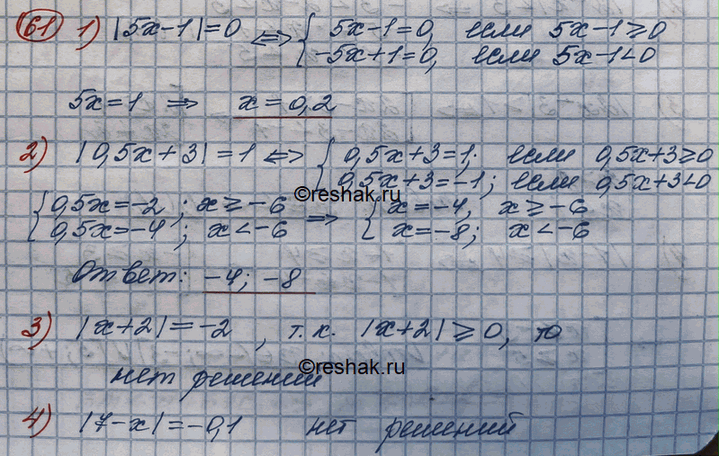 61 1) |5x-1|=0 ⇔ { 5x-1=0, если 5x-1≥0
-5x+1=0, если 5x-1<0
5x=1 ⇒ x=0,2
2) |0,5x+3|=1 ⇔ { 0,5x+3=1; если 0,5x+3≥0
0,5x+3=-1; если 0,5x+3<0
©reshak.ru
{ 0,5x=-2 ; x≥-6 ⇒ { x=-4, x≥-6
0,5x=-4 ; x<-6 x=-8; x<-6
Ответ: -4; -8
3) |x+2|=-2 , т.к. |x+2|≥0, то
нет решений
©reshak.ru
4) |7-x|=-0,1 нет решений